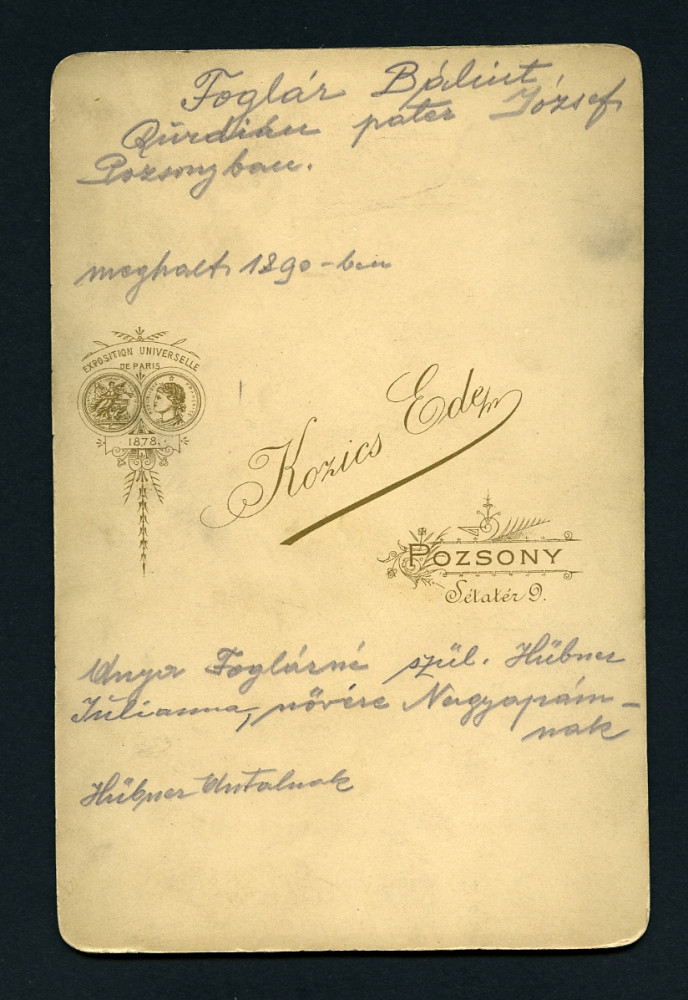 Foglár Bálint
Qurdián pater József
Pozsonyban.
meghalt 1890-ben
EXPOSITION UNIVERSELLE
DE PARIS
1878.
Kozics Ede
POZSONY
Sétatér 9.
Anya Foglárné szül. Hübner
Julianna, nővére Nagyapám-
nak
Hübner Antalnak